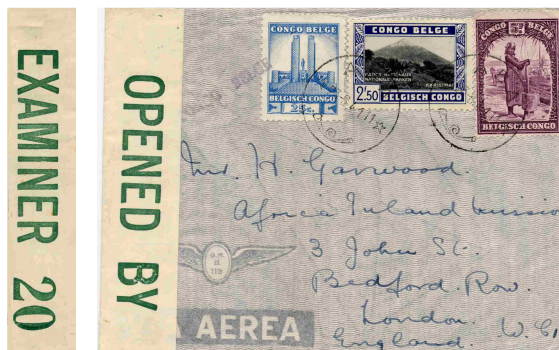 EXAMINER 20
OPENED BY
CONGO BELGE
BELGISCH CONGO
CONGO BELGE
PARCS NATIONAUX
NATIONALE PARKEN
KARISIMBI
2.50
BELGISCH CONGO
CONGO BELGE
BELGISCH CONGO
Mr. H. Garwood.
Africa Inland Mission
3 John St.
Bedford Row.
London. W.C.
England.
AEREA